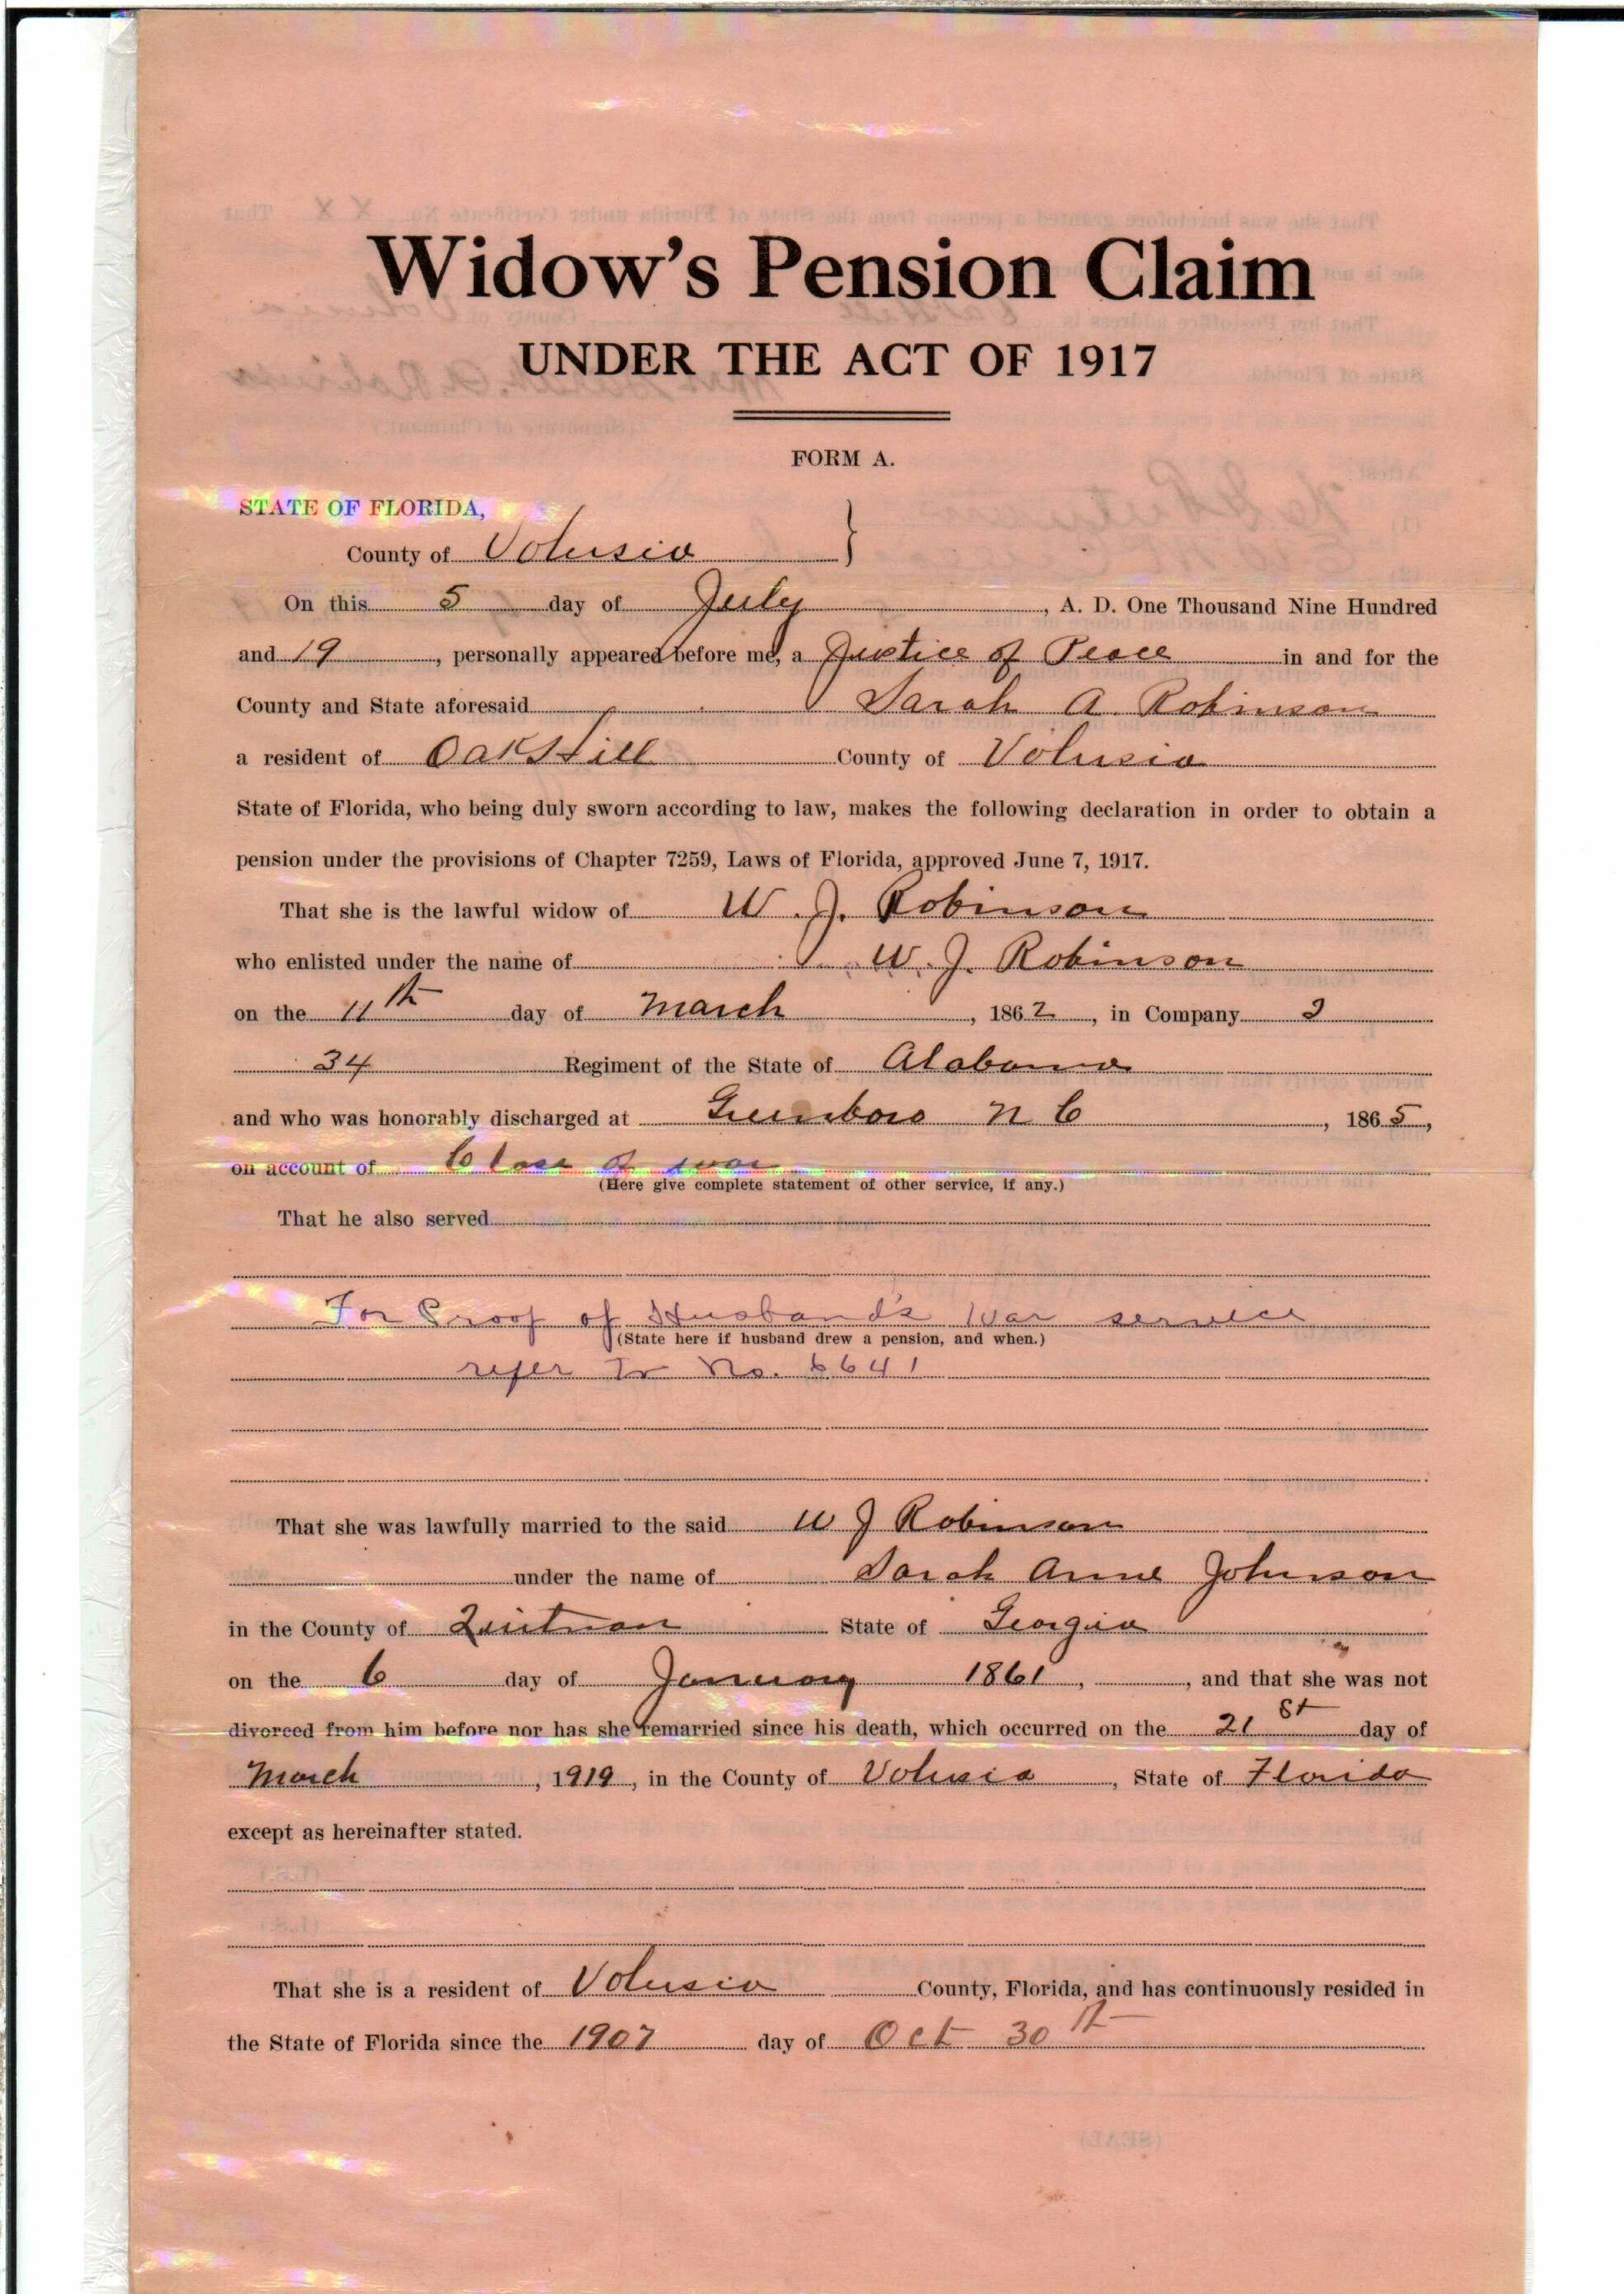 Widow's Pension Claim
UNDER THE ACT OF 1917
FORM A.
STATE OF FLORIDA,
County of Volusia
On this 5 day of July, A. D. One Thousand Nine Hundred
and 19, personally appeared before me, a Justice of Peace in and for the
County and State aforesaid Sarah A. Robinson
a resident of Oak Hill County of Volusia
State of Florida, who being duly sworn according to law, makes the following declaration in order to obtain a
pension under the provisions of Chapter 7259, Laws of Florida, approved June 7, 1917.
That she is the lawful widow of W. J. Robinson
who enlisted under the name of W. J. Robinson
on the 11th day of March, 1862, in Company
34 Regiment of the State of Alabama
and who was honorably discharged at Greensboro N C, 1865,
on account of Close of war
(Here give complete statement of other service, if any.)
That he also served
For Proof of Husband's War service
(State here if husband drew a pension, and when.)
refer to No. 6641
That she was lawfully married to the said W J Robinson
under the name of Sarah Anne Johnson
in the County of Quitman State of Georgia
on the 6 day of January 1861, and that she was not
divorced from him before nor has she remarried since his death, which occurred on the 21st day of
March, 1919, in the County of Volusia, State of Florida
except as hereinafter stated.
That she is a resident of Volusia County, Florida, and has continuously resided in
the State of Florida since the 1907 day of Oct 30th